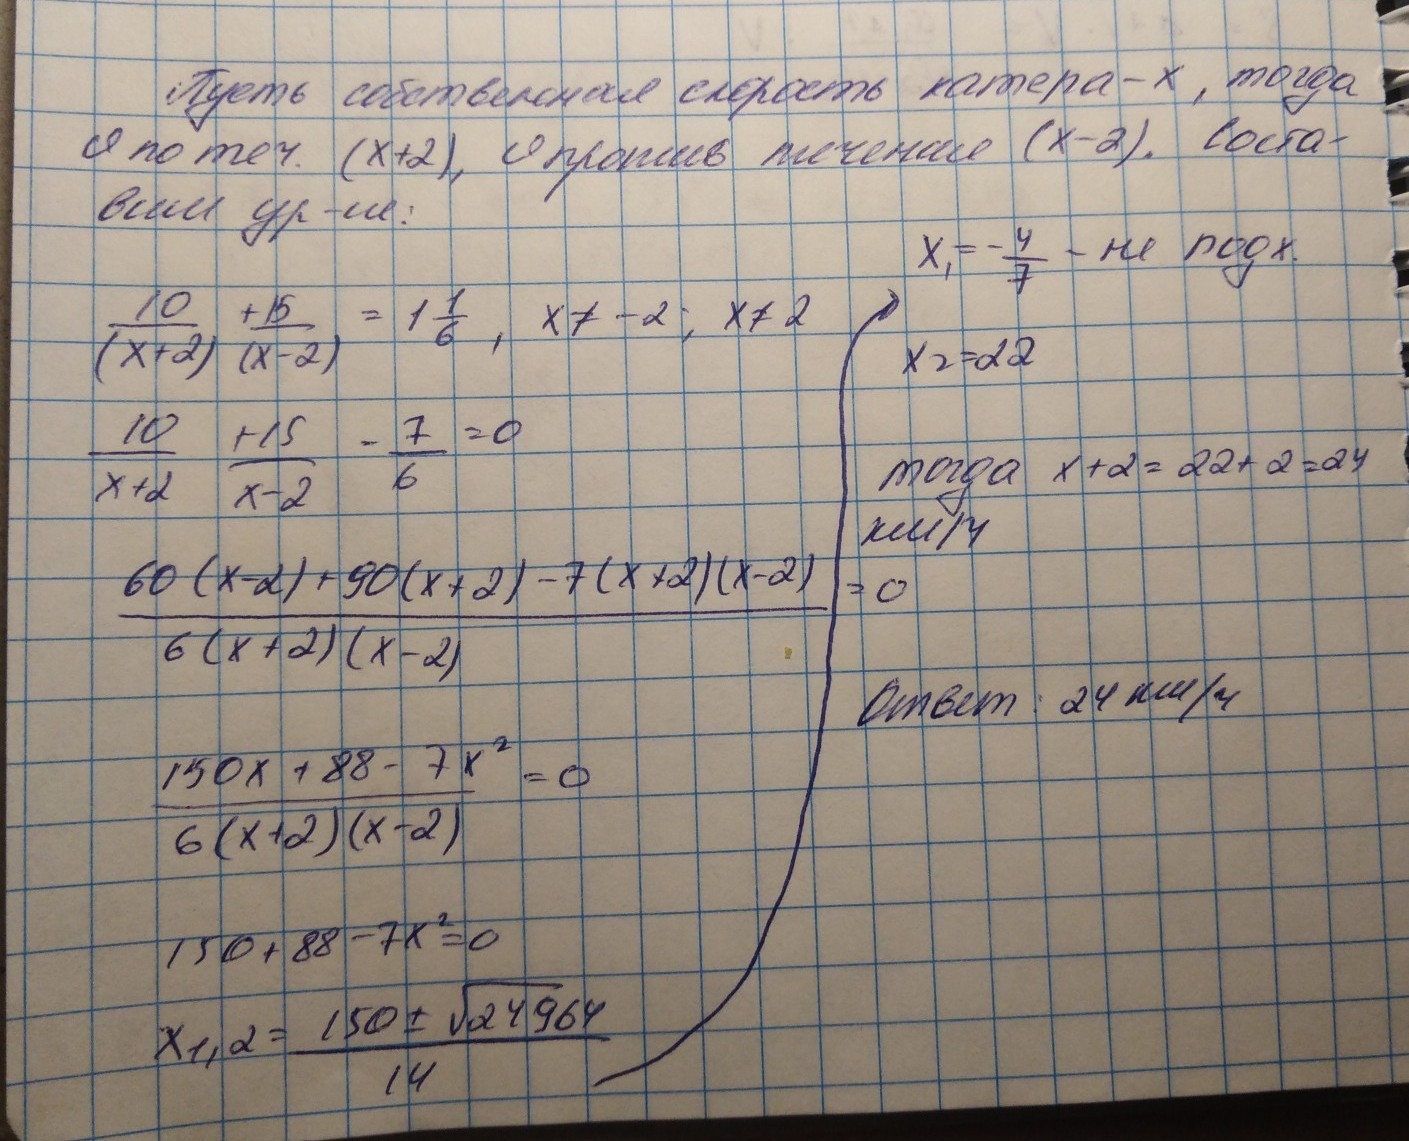 Пусть собственная скорость катера - x, тогда
v по теч. (x+2), v против течение (x-2). Соста-
вим ур-ие:
10/(x+2) + 15/(x-2) = 1 1/6, x ≠ -2; x ≠ 2
10/x+2 + 15/x-2 - 7/6 = 0
60(x-2)+90(x+2)-7(x+2)(x-2) / 6(x+2)(x-2) = 0
150x + 88 - 7x² / 6(x+2)(x-2) = 0
150 + 88 - 7x² = 0
x1,2 = 150 ± √24964 / 14
x₁ = -4/7 - не подх.
x₂ = 22
тогда x+2 = 22+2 = 24
км/ч
Ответ: 24 км/ч